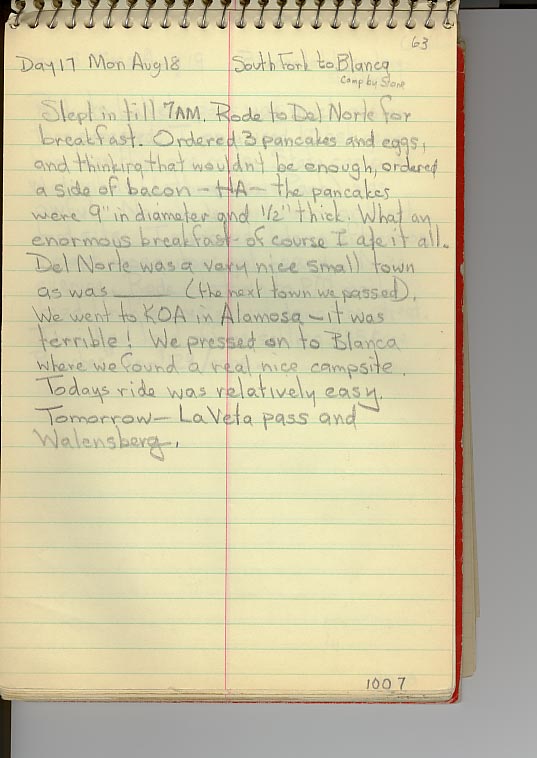 63
Day 17 Mon Aug 18 South Fork to Blanca
Camp by Store
Slept in till 7AM. Rode to Del Norte for
breakfast. Ordered 3 pancakes and eggs,
and thinking that wouldn't be enough, ordered
a side of bacon - HA - the pancakes
were 9" in diameter and 1/2" thick. What an
enormous breakfast - of course I ate it all.
Del Norte was a very nice small town
as was ______ (the next town we passed).
We went to KOA in Alamosa - it was
terrible! We pressed on to Blanca
where we found a real nice campsite.
Todays ride was relatively easy.
Tomorrow - LaVeta pass and
Walensberg.
1007